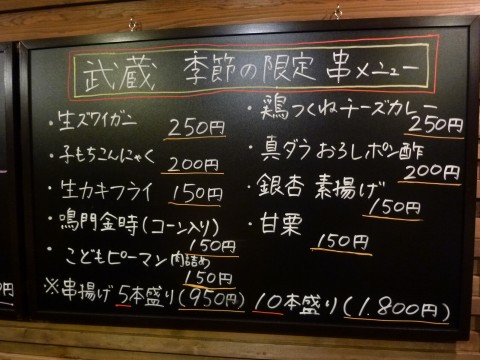 武蔵 季節の限定 串メニュー
・生ズワイガニ 250円
・子もちこんにゃく 200円
・生カキフライ 150円
・鳴門金時(コーン入り) 150円
・こどもピーマン肉詰め 150円
・鶏つくねチーズカレー 250円
・真ダラおろしポン酢 200円
・銀杏 素揚げ 150円
・甘栗 150円
※串揚げ 5本盛り(950円) 10本盛り(1.800円)